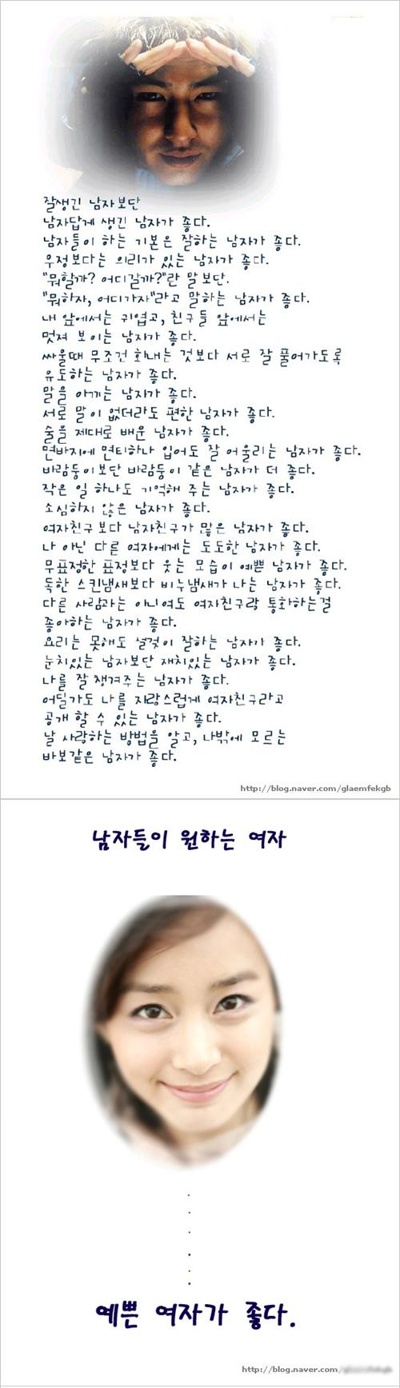 잘생긴 남자보단
남자답게 생긴 남자가 좋다.
남자들이 하는 기본은 잘하는 남자가 좋다.
우정보다는 의리가 있는 남자가 좋다.
"뭐할까? 어디갈까?"란 말보단.
"뭐하자, 어디가자"라고 말하는 남자가 좋다.
내 앞에서는 귀엽고, 친구들 앞에서는
멋져 보이는 남자가 좋다.
싸울때 무조건 화내는 것보다 서로 잘 풀어가도록
유도하는 남자가 좋다.
말을 아끼는 남자가 좋다.
서로 말이 없더라도 편한 남자가 좋다.
술을 제대로 배운 남자가 좋다.
면바지에 면티하나 입어도 잘 어울리는 남자가 좋다.
바람둥이보단 바람둥이 같은 남자가 더 좋다.
작은 일 하나도 기억해 주는 남자가 좋다.
소심하지 않은 남자가 좋다.
여자친구보다 남자친구가 많은 남자가 좋다.
나 아닌 다른 여자에게는 도도한 남자가 좋다.
무표정한 표정보다 웃는 모습이 예쁜 남자가 좋다.
독한 스킨냄새보다 비누냄새가 나는 남자가 좋다.
다른 사람과는 아니여도 여자친구랑 통화하는걸
좋아하는 남자가 좋다.
요리는 못해도 설겆이 잘하는 남자가 좋다.
눈치있는 남자보단 재치있는 남자가 좋다.
나를 잘 챙겨주는 남자가 좋다.
어딜가도 나를 자랑스럽게 여자친구라고
공개 할 수 있는 남자가 좋다.
날 사랑하는 방법을 알고, 나밖에 모르는
바보같은 남자가 좋다.
http://blog.naver.com/glaemfekgb
남자들이 원하는 여자
예쁜 여자가 좋다.
http://blog.naver.com/